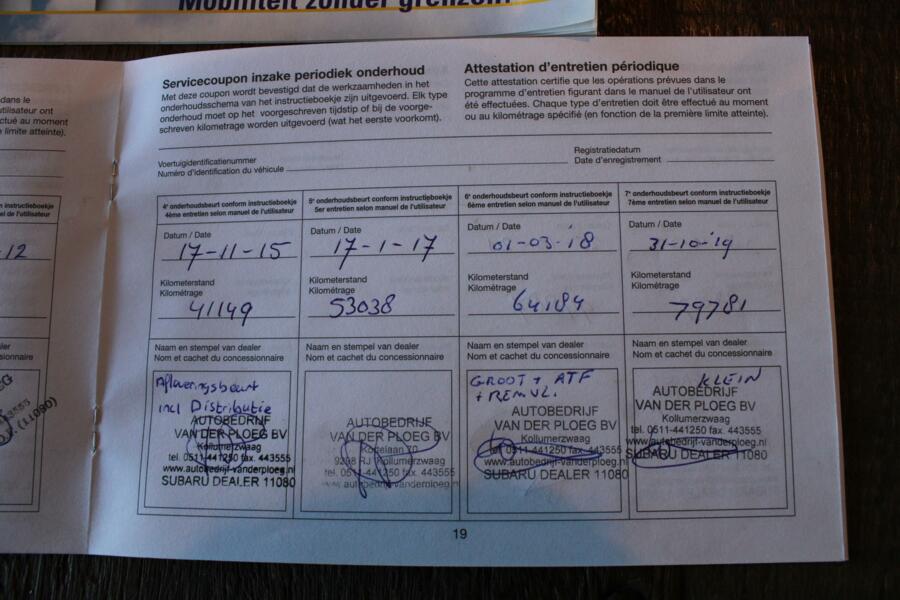 Mobiliteit zonder grenzen!
dans le
utilisateur ont
ctué au moment
e limite atteinte).
Servicecoupon inzake periodiek onderhoud
Met deze coupon wordt bevestigd dat de werkzaamheden in het
onderhoudsschema van het instructieboekje zijn uitgevoerd. Elk type
onderhoud moet op het voorgeschreven tijdstip of bij de voorge-
schreven kilometrage worden uitgevoerd (wat het eerste voorkomt).
Attestation d'entretien périodique
Cette attestation certifie que les opérations prévues dans le
programme d'entretien figurant dans le manuel de l'utilisateur ont
été effectuées. Chaque type d'entretien doit être effectué au moment
ou au kilométrage spécifié (en fonction de la première limite atteinte).
Voertuigidentificatienummer
Numéro d'identification du véhicule
Registratiedatum
Date d'enregistrement
instructieboekje
el de l'utilisateur
12
aler
cessionnaire
4e onderhoudsbeurt conform instructieboekje
4ème entretien selon manuel de l'utilisateur
Datum / Date
17-11-15
Kilometerstand
Kilométrage
41149
Naam en stempel van dealer
Nom et cachet du concessionnaire
Afleveringsbeurt
incl Distributie
AUTOBEDRIJF
VAN DER PLOEG BV
Kollumerzwaag
tel. 0511-441250 fax. 443555
www.autobedrijf-vanderploeg.nl
SUBARU DEALER 11080
5e onderhoudsbeurt conform instructieboekje
5er entretien selon manuel de l'utilisateur
Datum / Date
17-1-17
Kilometerstand
Kilométrage
53038
Naam en stempel van dealer
Nom et cachet du concessionnaire
AUTOBEDRIJF
VAN DER PLOEG BV
9298 RJ Kollumerzwaag
tel. 0511-441250 fax. 443555
www.autobedrijf-vanderploeg.nl
6e onderhoudsbeurt conform instructieboekje
6ème entretien selon manuel de l'utilisateur
Datum / Date
01-03-'18
Kilometerstand
Kilométrage
64184
Naam en stempel van dealer
Nom et cachet du concessionnaire
GROOT + ATF
+ REMVL.
AUTOBEDRIJF
VAN DER PLOEG BV
Kollumerzwaag
tel. 0511-441250 fax. 443555
www.autobedrijf-vanderploeg.nl
SUBARU DEALER 11080
7e onderhoudsbeurt conform instructieboekje
7ème entretien selon manuel de l'utilisateur
Datum / Date
31-10-'19
Kilometerstand
Kilométrage
79781
Naam en stempel van dealer
Nom et cachet du concessionnaire
KLEIN
AUTOBEDRIJF
VAN DER PLOEG BV
Kollumerzwaag
tel. 0511-441250 fax. 443555
www.autobedrijf-vanderploeg.nl
SUBARU DEALER 11080
19